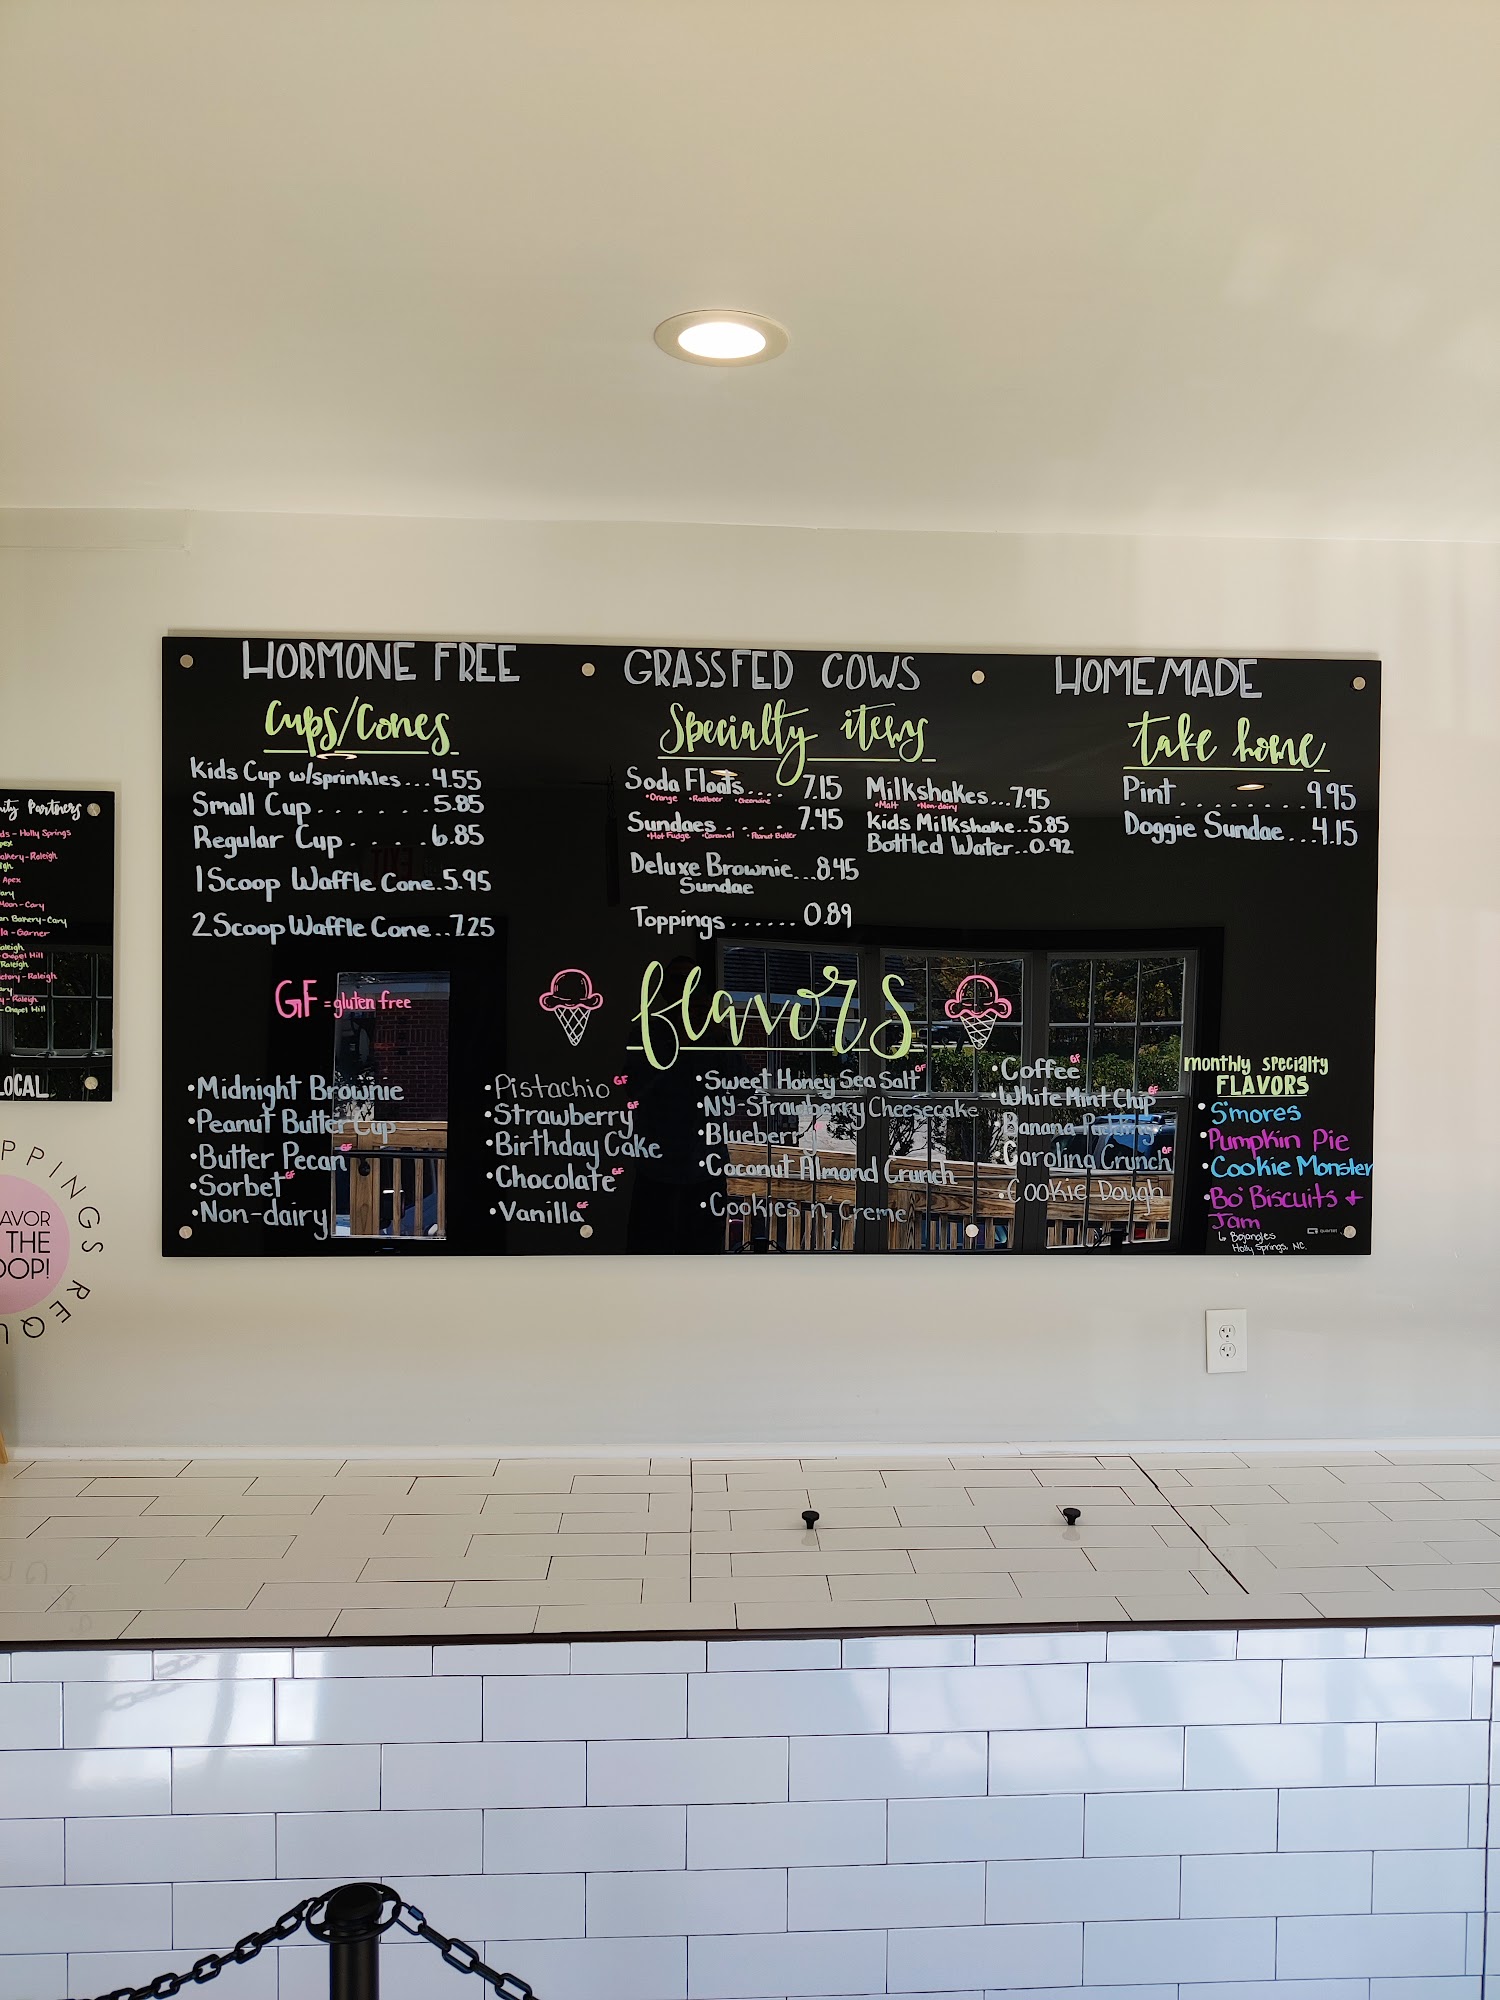 HORMONE FREE
GRASSFED COWS
HOMEMADE
Cups/Cones
Kids Cup w/sprinkles...4.55
Small Cup . . . . . 5.85
Regular Cup . . . . .6.85
1 Scoop Waffle Cone.5.95
2 Scoop Waffle Cone..7.25
Specialty items
Soda Floats.... 7.15
•Orange •Rootbeer •Cheerwine
Sundaes . . . . 7.45
•Hot Fudge •Caramel •Peanut Butter
Deluxe Brownie...8.45
Sundae
Toppings...... 0.89
Milkshakes...7.95
•Malt •Non-dairy
Kids Milkshake..5.85
Bottled Water..0.92
take home
Pint . . . . . . . .9.95
Doggie Sundae...4.15
GF = gluten free
flavors
•Midnight Brownie
•Peanut Butter Cup
•Butter Pecan GF
•Sorbet GF
•Non-dairy
•Pistachio GF
•Strawberry GF
•Birthday Cake
•Chocolate GF
•Vanilla GF
•Sweet Honey Sea Salt GF
•NY-Strawberry Cheesecake
•Blueberry
•Coconut Almond Crunch
•Cookies n' Creme
•Coffee GF
•White Mint Chip GF
•Banana Pudding
•Carolina Crunch GF
•Cookie Dough
monthly specialty
FLAVORS
•S'mores
•Pumpkin Pie
•Cookie Monster
•Bo' Biscuits +
Jam
Bojangles
Holly Springs, NC.
Partners
- Holly Springs
-Raleigh
Apex
-Cary
Bakery-Cary
-Garner
Chapel Hill
Raleigh
-Raleigh
-Raleigh
-Chapel Hill
LOCAL
PPINGS REQU
THE